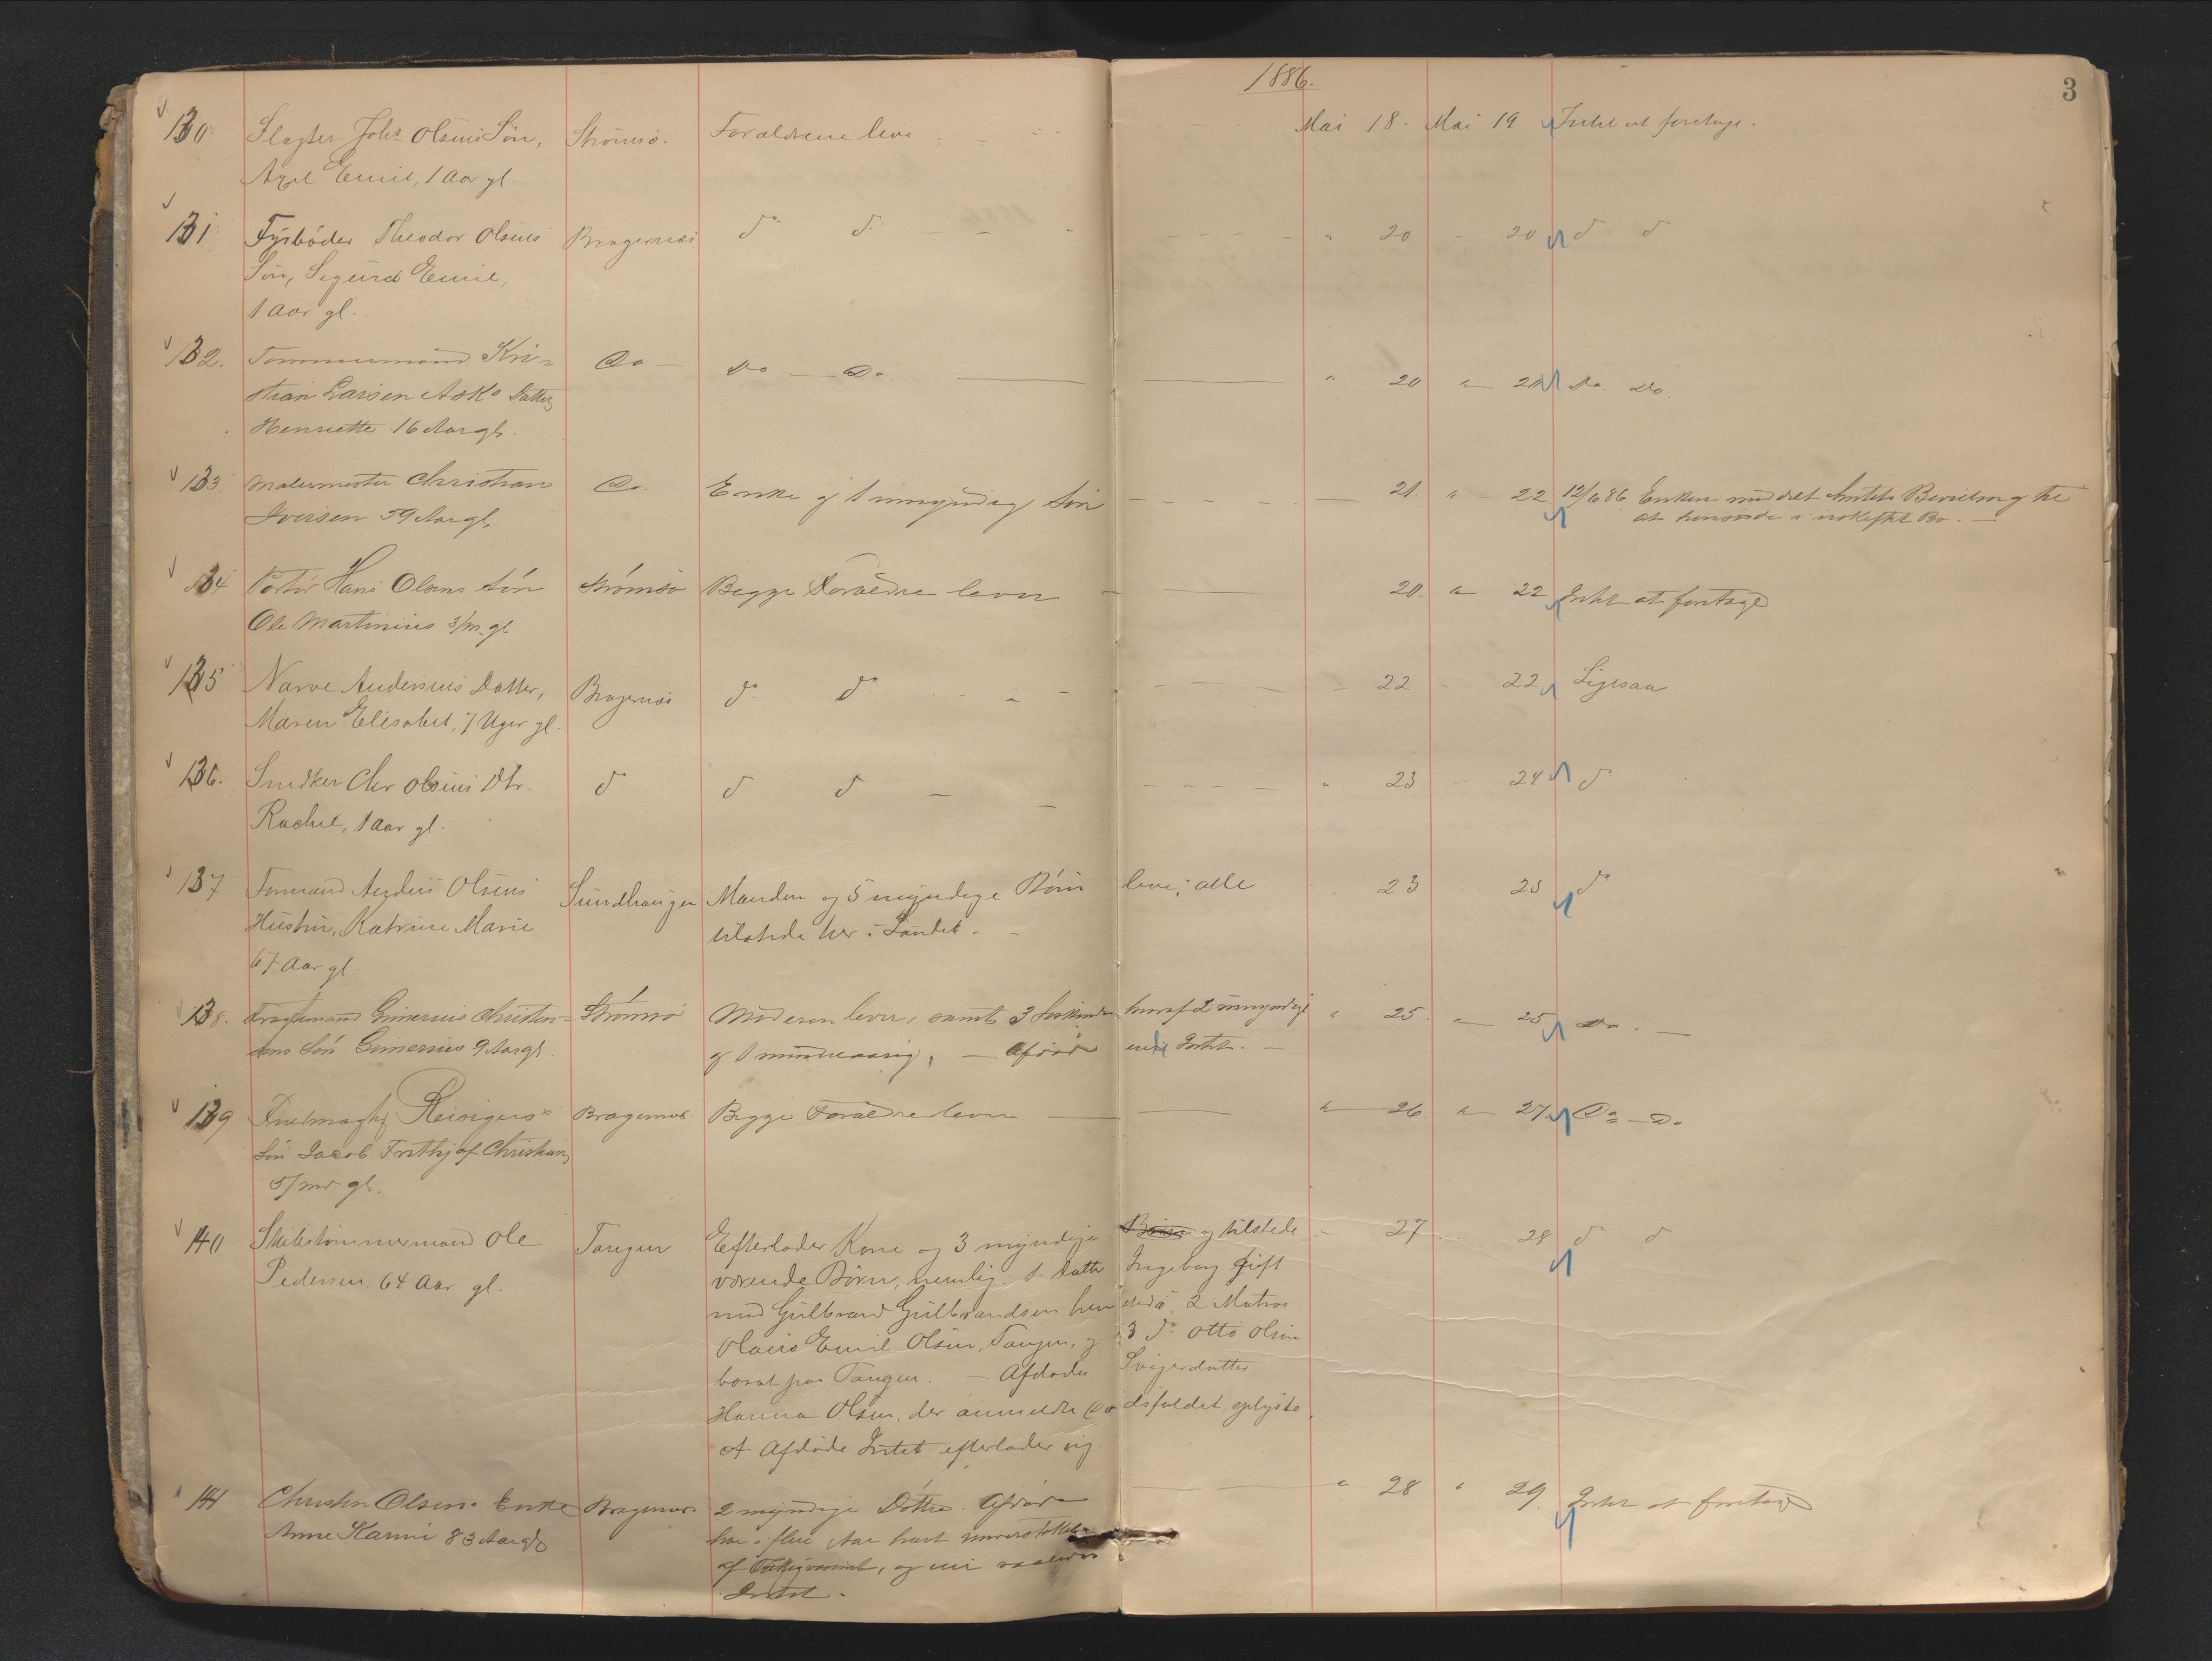 1886.
3
130. Slagter Johs Olsens Søn, Strømsø. Forældrene leve - - Mai 18. Mai 19 Intet at foretage.
Axel Emil, 1 Aar gl.
131 Fyrbøder Theodor Olsens Bragernæs do do - - - " 20 - 20 do do
Søn, Sigurd Emil,
1 Aar gl.
132. Tømmermand Kri- Do - Do - Do " 20 " Do Do
stian Larsen Asks Datter
Henriette 16 Aar gl.
133 Malermester Christian Do Enke og 1 umyndig Søn - - - 21. " 22 12/6 86 Enken meddelt Amtets Bevilling til
Iversen 59 Aar gl. at hensidde i uskiftet Bo. -
134 Portør Hans Olsens Søn Strømsø Begge Forældre lever 20. " 22 Intet at foretage
Ole Martinius 3/m. gl.
135 Narve Andersens Datter, Bragernæs do do - - - 22 - 22 Ligesaa
Maren Elisabet, 7 Uger gl.
136. Snedker Chr Olsens Dtr. do do do - - " 23 - 24 do
Rachel, 1 Aar gl.
137 Formand Anders Olsens Sundhaugen Manden og 5 myndige Børn leve; alle 23 25 do
Hustru, Katrine Marie tilstede her i Landet. -
67 Aar gl.
138. Christen- Strømsø Moderen lever, samt 3 Søskende hvoraf 2 umyndige " 25. " 25 Do. -
sens Søn 9 Aar gl. og 1 mindreaarig, - Afdøde eiede Intet. -
139 Reisigers Bragernæs. Begge Forældre lever " 26. " 27. Do - Do
Søn Jacob Frithjof Christian
5/md gl.
140 Skibstømmermand Ole Tangen Efterlader Kone og 3 myndige Børn og tilstede - 27 - 28 do do
Pedersen 64 Aar gl. værende Børn, nemlig: 1. Datter Ingeborg gift
med Gulbrand Gulbrandsen 2 Matros
Olaus Emil Olsen, Tangen, og 3 do Otto Olsen
bosat paa Tangen. - Afdødes Svigerdatter
Hanna Olsen, der anmeldte Dødsfaldet, oplyste,
at Afdøde Intet efterlader sig
141 Christen Olsens Enke Bragernæs. 2 myndige Døttre. Afdøde " 28 " 29. Intet at foretage
Anne Karine 83 Aar gl. har i flere Aar havt understøttelse
af Fattigvæsenet, og eier saaledes
Intet.